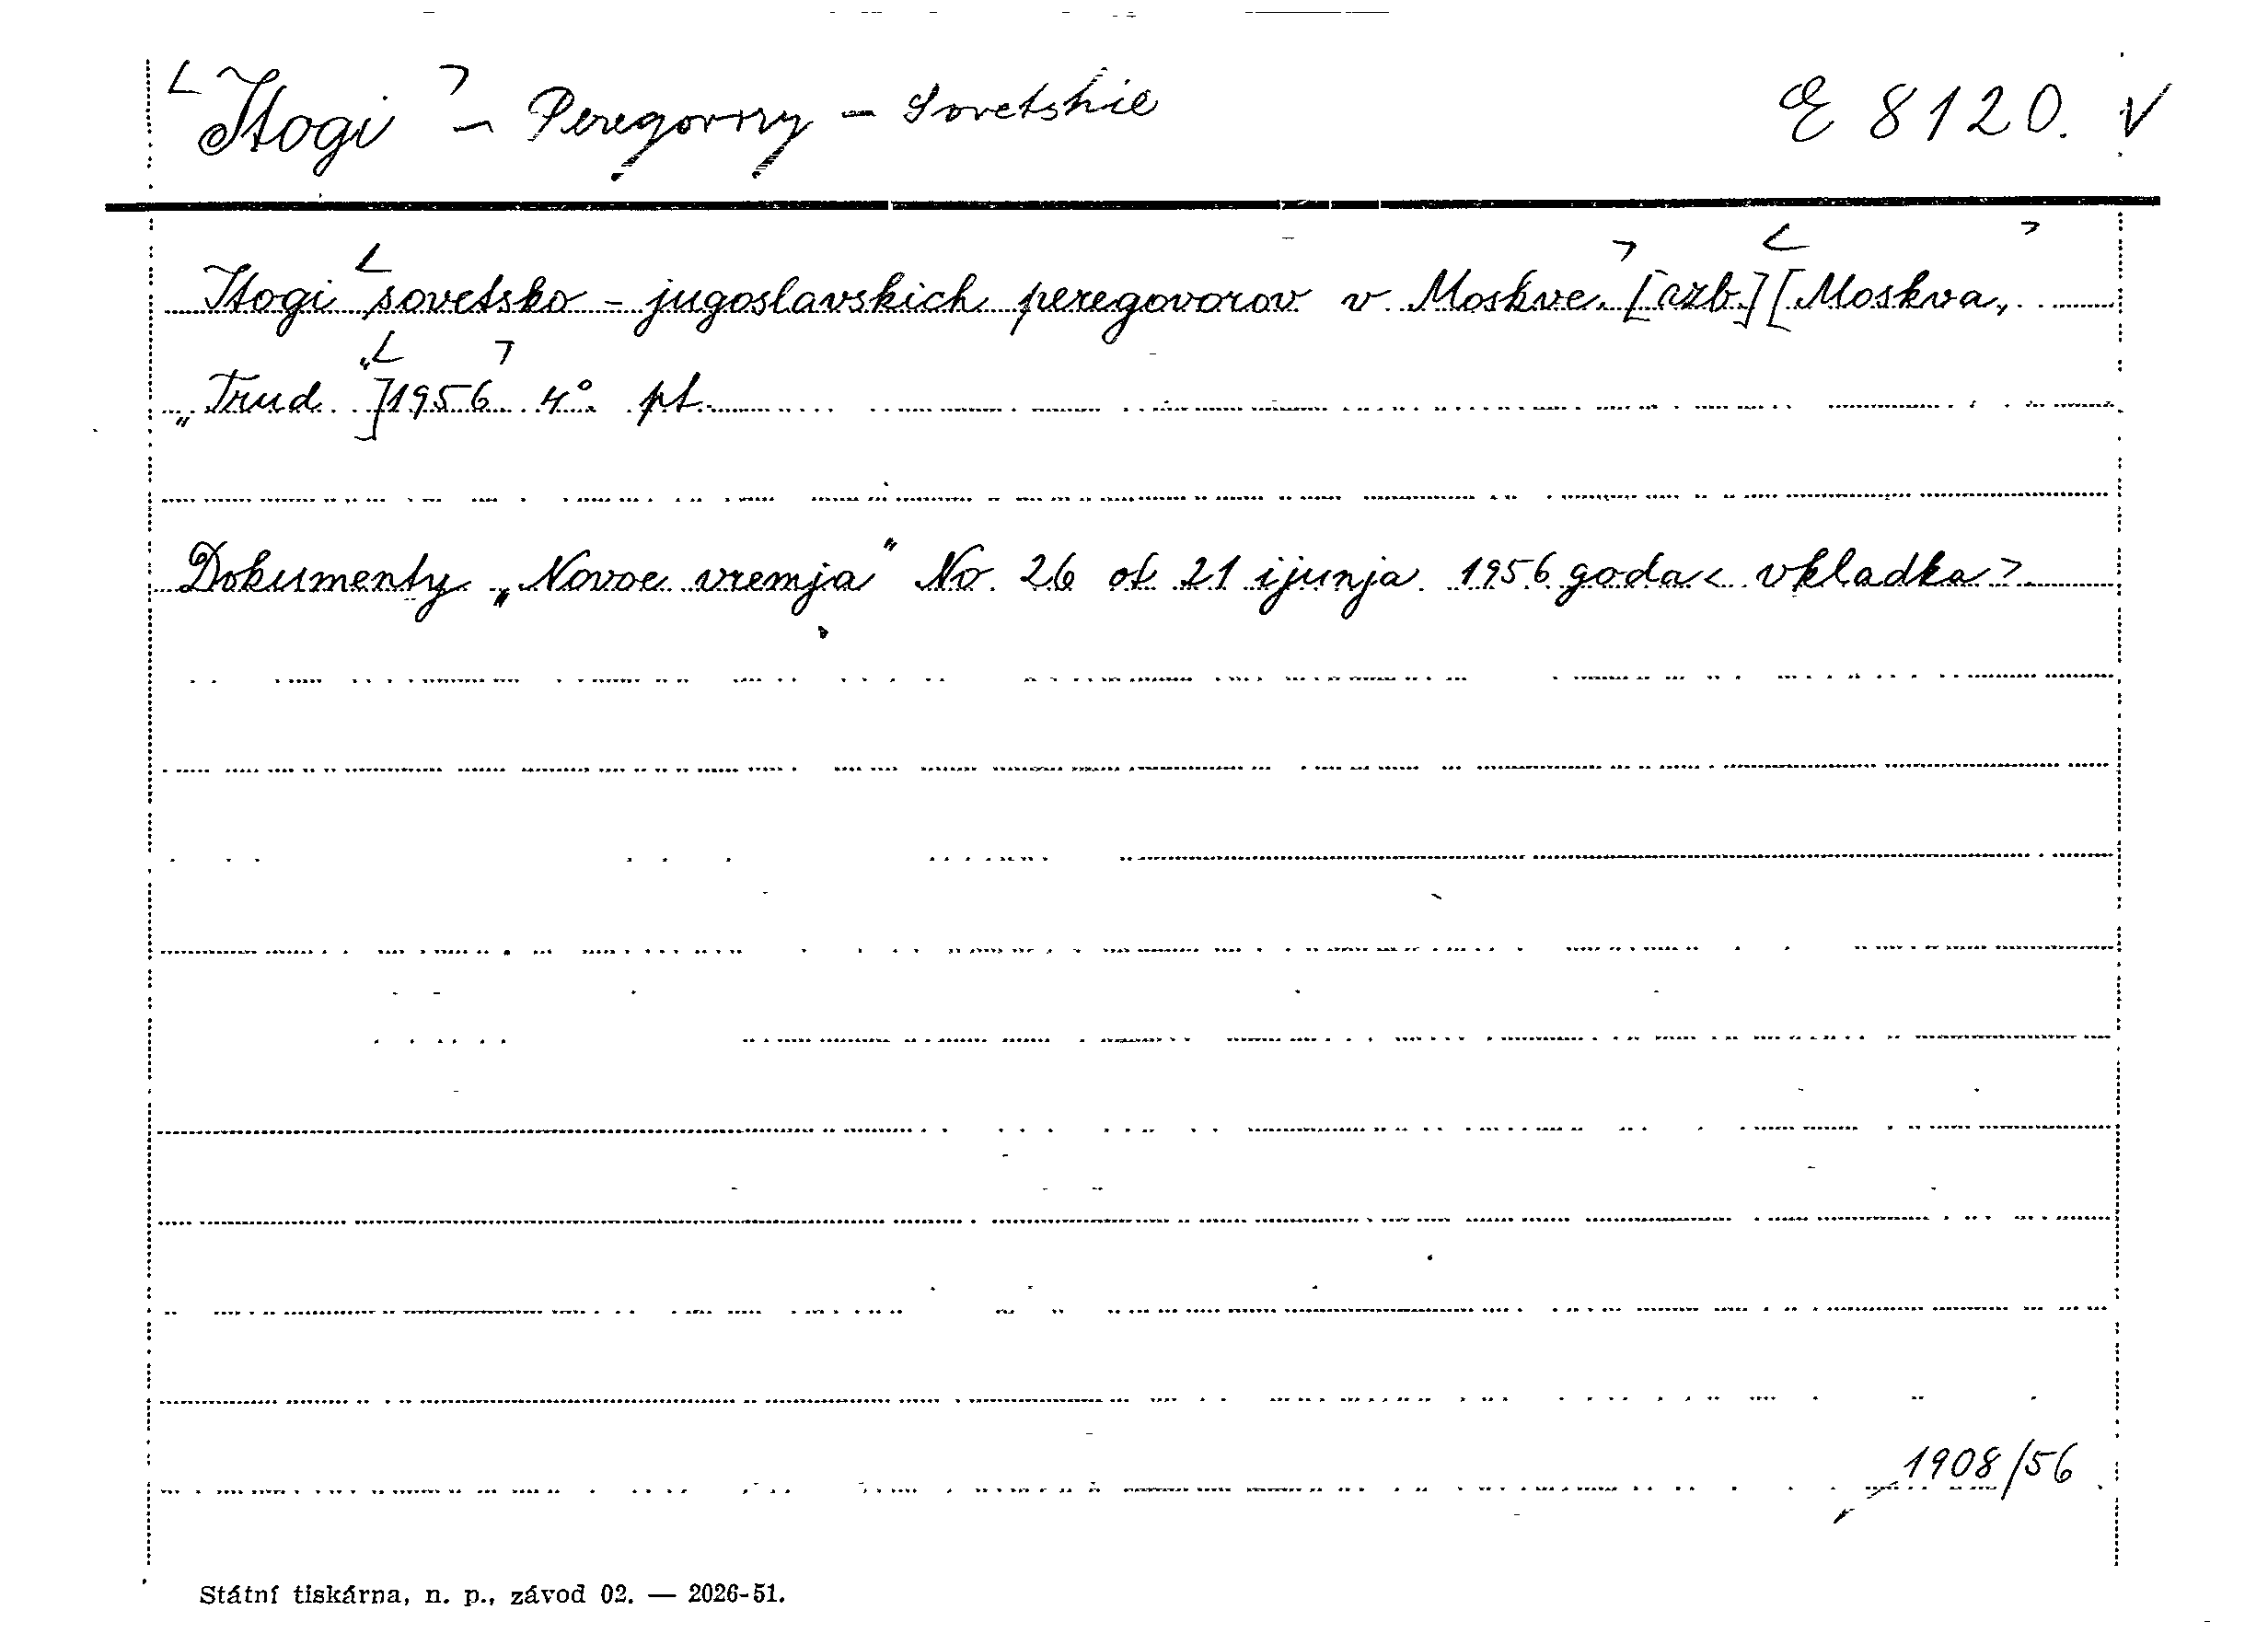 <Itogi> - Peregovory - Sovetskie E 8120. V
Itogi <sovetsko-jugoslavskich peregovorov v Moskve.> [azb.] <[Moskva,>
„Trud“] <1956> 4° pt.
Dokumenty „Novoe vremja“ No. 26 ot 21 ijunja 1956 goda < vkladka >.
1908/56
Státní tiskárna, n. p., závod 02. — 2026-51.